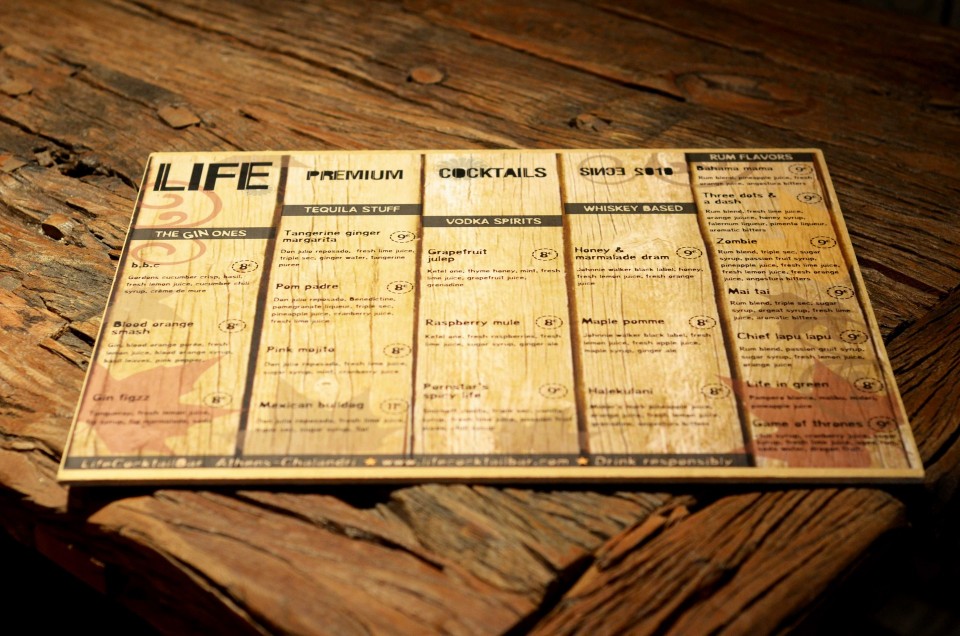 LIFE
THE GIN ONES
b.b.c 8€
Gordons cucumber crisp, basil,
fresh lime juice, cucumber chili
syrup, crème de mure
Blood orange
smash 8€
Gin, blood orange puree, fresh
lemon juice, blood orange syrup,
Gin figzz 8€
Tanqueray, fresh lemon juice,
PREMIUM
TEQUILA STUFF
Tangerine ginger
margarita 9€
Don julio reposado, fresh lime juice,
triple sec, ginger water, tangerine
puree
Pom padre 8€
Don julio reposado, Benedictine,
pomegranate liqueur, triple sec,
pineapple juice, cranberry juice,
fresh lime juice
Pink mojito 8€
Don julio reposado, fresh lime juice,
sugar syrup, cranberry juice
Mexican bulldog 11€
COCKTAILS
VODKA SPIRITS
Grapefruit
julep 8€
Ketel one, thyme honey, mint, fresh
lime juice, grapefruit juice,
grenadine
Raspberry mule 8€
Ketel one, fresh raspberries, fresh
lime juice, sugar syrup, ginger ale
Pornstar's
spicy life 9€
SINCE 2010
WHISKEY BASED
Honey &
marmalade dram 9€
Johnnie walker black label, honey,
fresh lemon juice, fresh orange
juice
Maple pomme 8€
Johnnie walker black label, fresh
lemon juice, fresh apple juice,
maple syrup, ginger ale
Halekulani 8€
RUM FLAVORS
Bahama mama 9€
Rum blend, pineapple juice, fresh
orange juice, angostura bitters
Three dots &
a dash 9€
Rum blend, fresh lime juice,
orange juice, honey syrup,
falernum liqueur, pimento liqueur,
aromatic bitters
Zombie 9€
Rum blend, triple sec, sugar
syrup, passion fruit syrup,
pineapple juice, fresh lime juice,
fresh lemon juice, fresh orange
juice, angostura bitters
Mai tai 9€
Rum blend, triple sec, sugar
syrup, orgeat syrup, fresh lime
juice, aromatic bitters
Chief lapu lapu 9€
Rum blend, passion fruit syrup,
sugar syrup, fresh lemon juice,
orange juice
Life in green 8€
Pampero blanco, malibu, melon,
pineapple juice
Game of thrones 9€
LifeCocktailBar Athens-Chalandri ★ www.lifecocktailbar.com ★ Drink responsibly